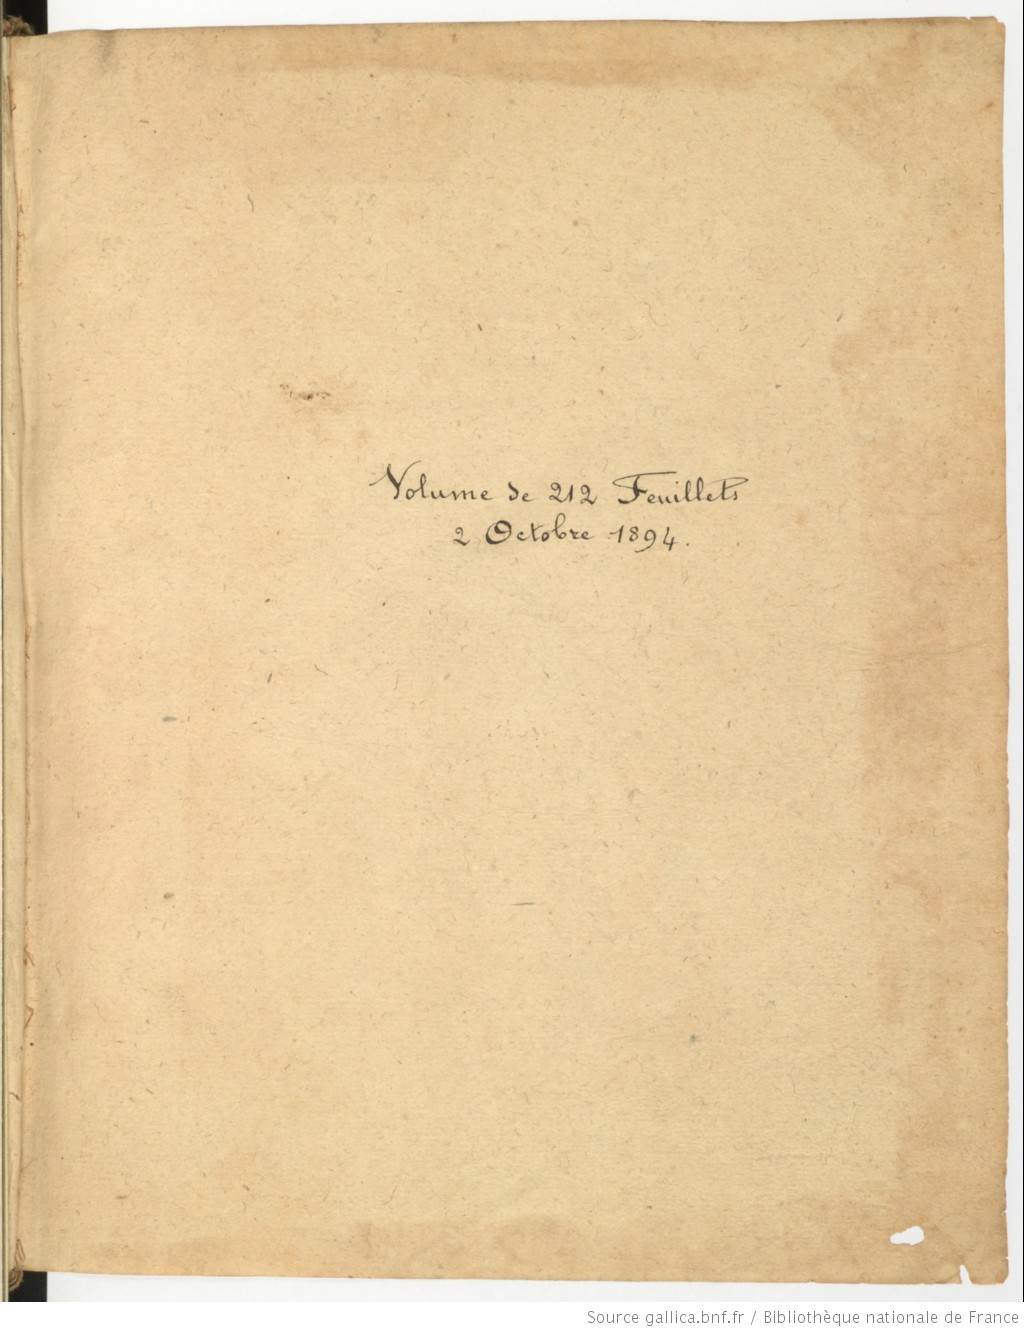 Volume de 212 Feuillets
2 Octobre 1894.
Source gallica.bnf.fr / Bibliothèque nationale de France